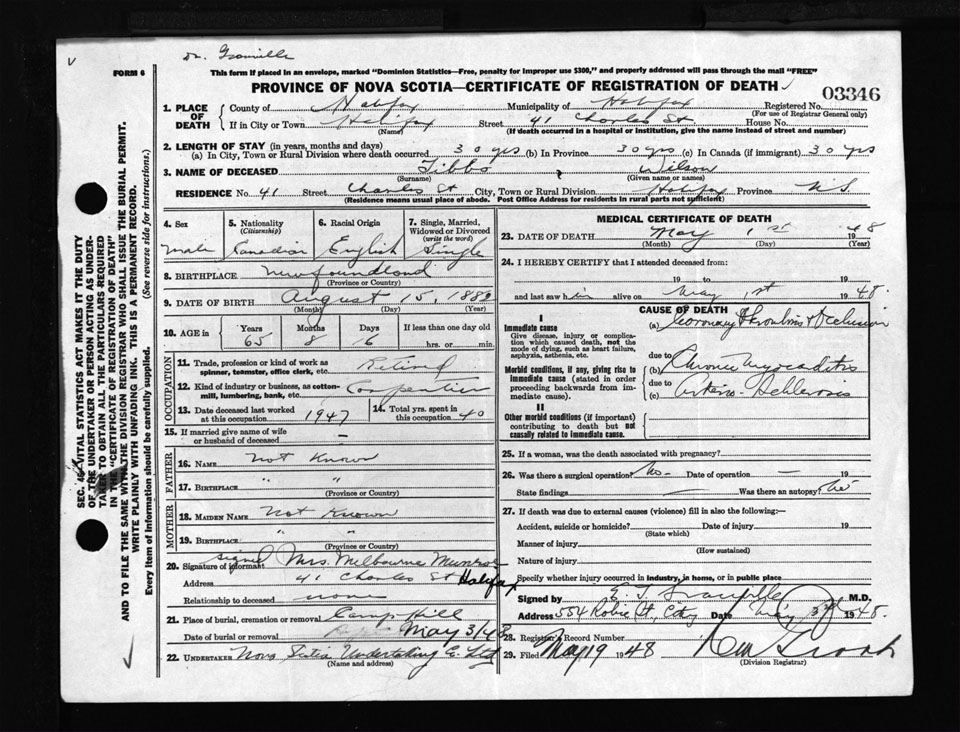 Dr. Granville
FORM 6
This form if placed in an envelope, marked "Dominion Statistics—Free, penalty for improper use $300," and properly addressed will pass through the mail "FREE"
PROVINCE OF NOVA SCOTIA—CERTIFICATE OF REGISTRATION OF DEATH
03346
1. PLACE OF DEATH
County of Halifax Municipality of Halifax Registered No.
(For use of Registrar General only)
If in City or Town Halifax Street 41 Charles St House No.
(Name) (If death occurred in a hospital or institution, give the name instead of street and number)
2. LENGTH OF STAY (in years, months and days)
(a) In City, Town or Rural Division where death occurred 30 yrs (b) In Province 30 yrs (c) In Canada (if immigrant) 30 yrs
3. NAME OF DECEASED Tibbo Wilson
(Surname) (Given name or names)
RESIDENCE No. 41 Street Charles St City, Town or Rural Division Halifax Province N.S.
(Residence means usual place of abode. Post Office Address for residents in rural parts not sufficient)
4. Sex
male
5. Nationality
(Citizenship)
Canadian
6. Racial Origin
English
7. Single, Married, Widowed or Divorced
(write the word)
Single
8. BIRTHPLACE Newfoundland
(Province or Country)
9. DATE OF BIRTH August 15, 1882
(Month) (Day) (Year)
10. AGE in
Years Months Days If less than one day old
65 8 16 hrs. or min.
OCCUPATION
11. Trade, profession or kind of work as spinner, teamster, office clerk, etc. Retired
12. Kind of industry or business, as cotton-mill, lumbering, bank, etc. Carpenter
13. Date deceased last worked at this occupation 1947
14. Total yrs. spent in this occupation 40
15. If married give name of wife or husband of deceased —
FATHER
16. NAME Not Known
17. BIRTHPLACE " "
(Province or Country)
MOTHER
18. MAIDEN NAME Not Known
19. BIRTHPLACE " "
(Province or Country)
signed
20. Signature of informant Mrs. Melbourne Munroe
Address 41 Charles St Halifax
Relationship to deceased none
21. Place of burial, cremation or removal Camp Hill
Date of burial or removal May 3/48
22. UNDERTAKER Nova Scotia Undertaking Co. Ltd
(Name and address)
MEDICAL CERTIFICATE OF DEATH
23. DATE OF DEATH May 1st 1948
(Month) (Day) (Year)
24. I HEREBY CERTIFY that I attended deceased from:
19 to 19
and last saw him alive on May 1st 1948.
CAUSE OF DEATH
I
Immediate cause
Give disease, injury or complication which caused death, not the mode of dying, such as heart failure, asphyxia, asthenia, etc.
(a) Coronary Thrombus & Occlusion
due to
Morbid conditions, if any, giving rise to immediate cause (stated in order proceeding backwards from immediate cause)
(b) Chronic Myocarditis
due to
(c) Arterio-Schlerosis
II
Other morbid conditions (if important) contributing to death but not causally related to immediate cause.
25. If a woman, was the death associated with pregnancy?
26. Was there a surgical operation? No- Date of operation — 19
State findings — Was there an autopsy? No
27. If death was due to external causes (violence) fill in also the following:—
Accident, suicide or homicide? Date of injury 19
(State which)
Manner of injury
(How sustained)
Nature of injury
Specify whether injury occurred in industry, in home, or in public place
Signed by E. T. Granville M.D.
Address 554 Robie St., City Date May 3rd 1948.
28. Registrar's Record Number
29. Filed May 19 1948
(Division Registrar)
SEC. 46—VITAL STATISTICS ACT MAKES IT THE DUTY
OF THE UNDERTAKER OR PERSON ACTING AS UNDERTAKER TO OBTAIN ALL THE PARTICULARS REQUIRED
IN THE "CERTIFICATE OF REGISTRATION OF DEATH"
AND TO FILE THE SAME WITH THE DIVISION REGISTRAR WHO SHALL ISSUE THE BURIAL PERMIT.
WRITE PLAINLY WITH UNFADING INK. THIS IS A PERMANENT RECORD.
Every item of information should be carefully supplied. (See reverse side for instructions.)